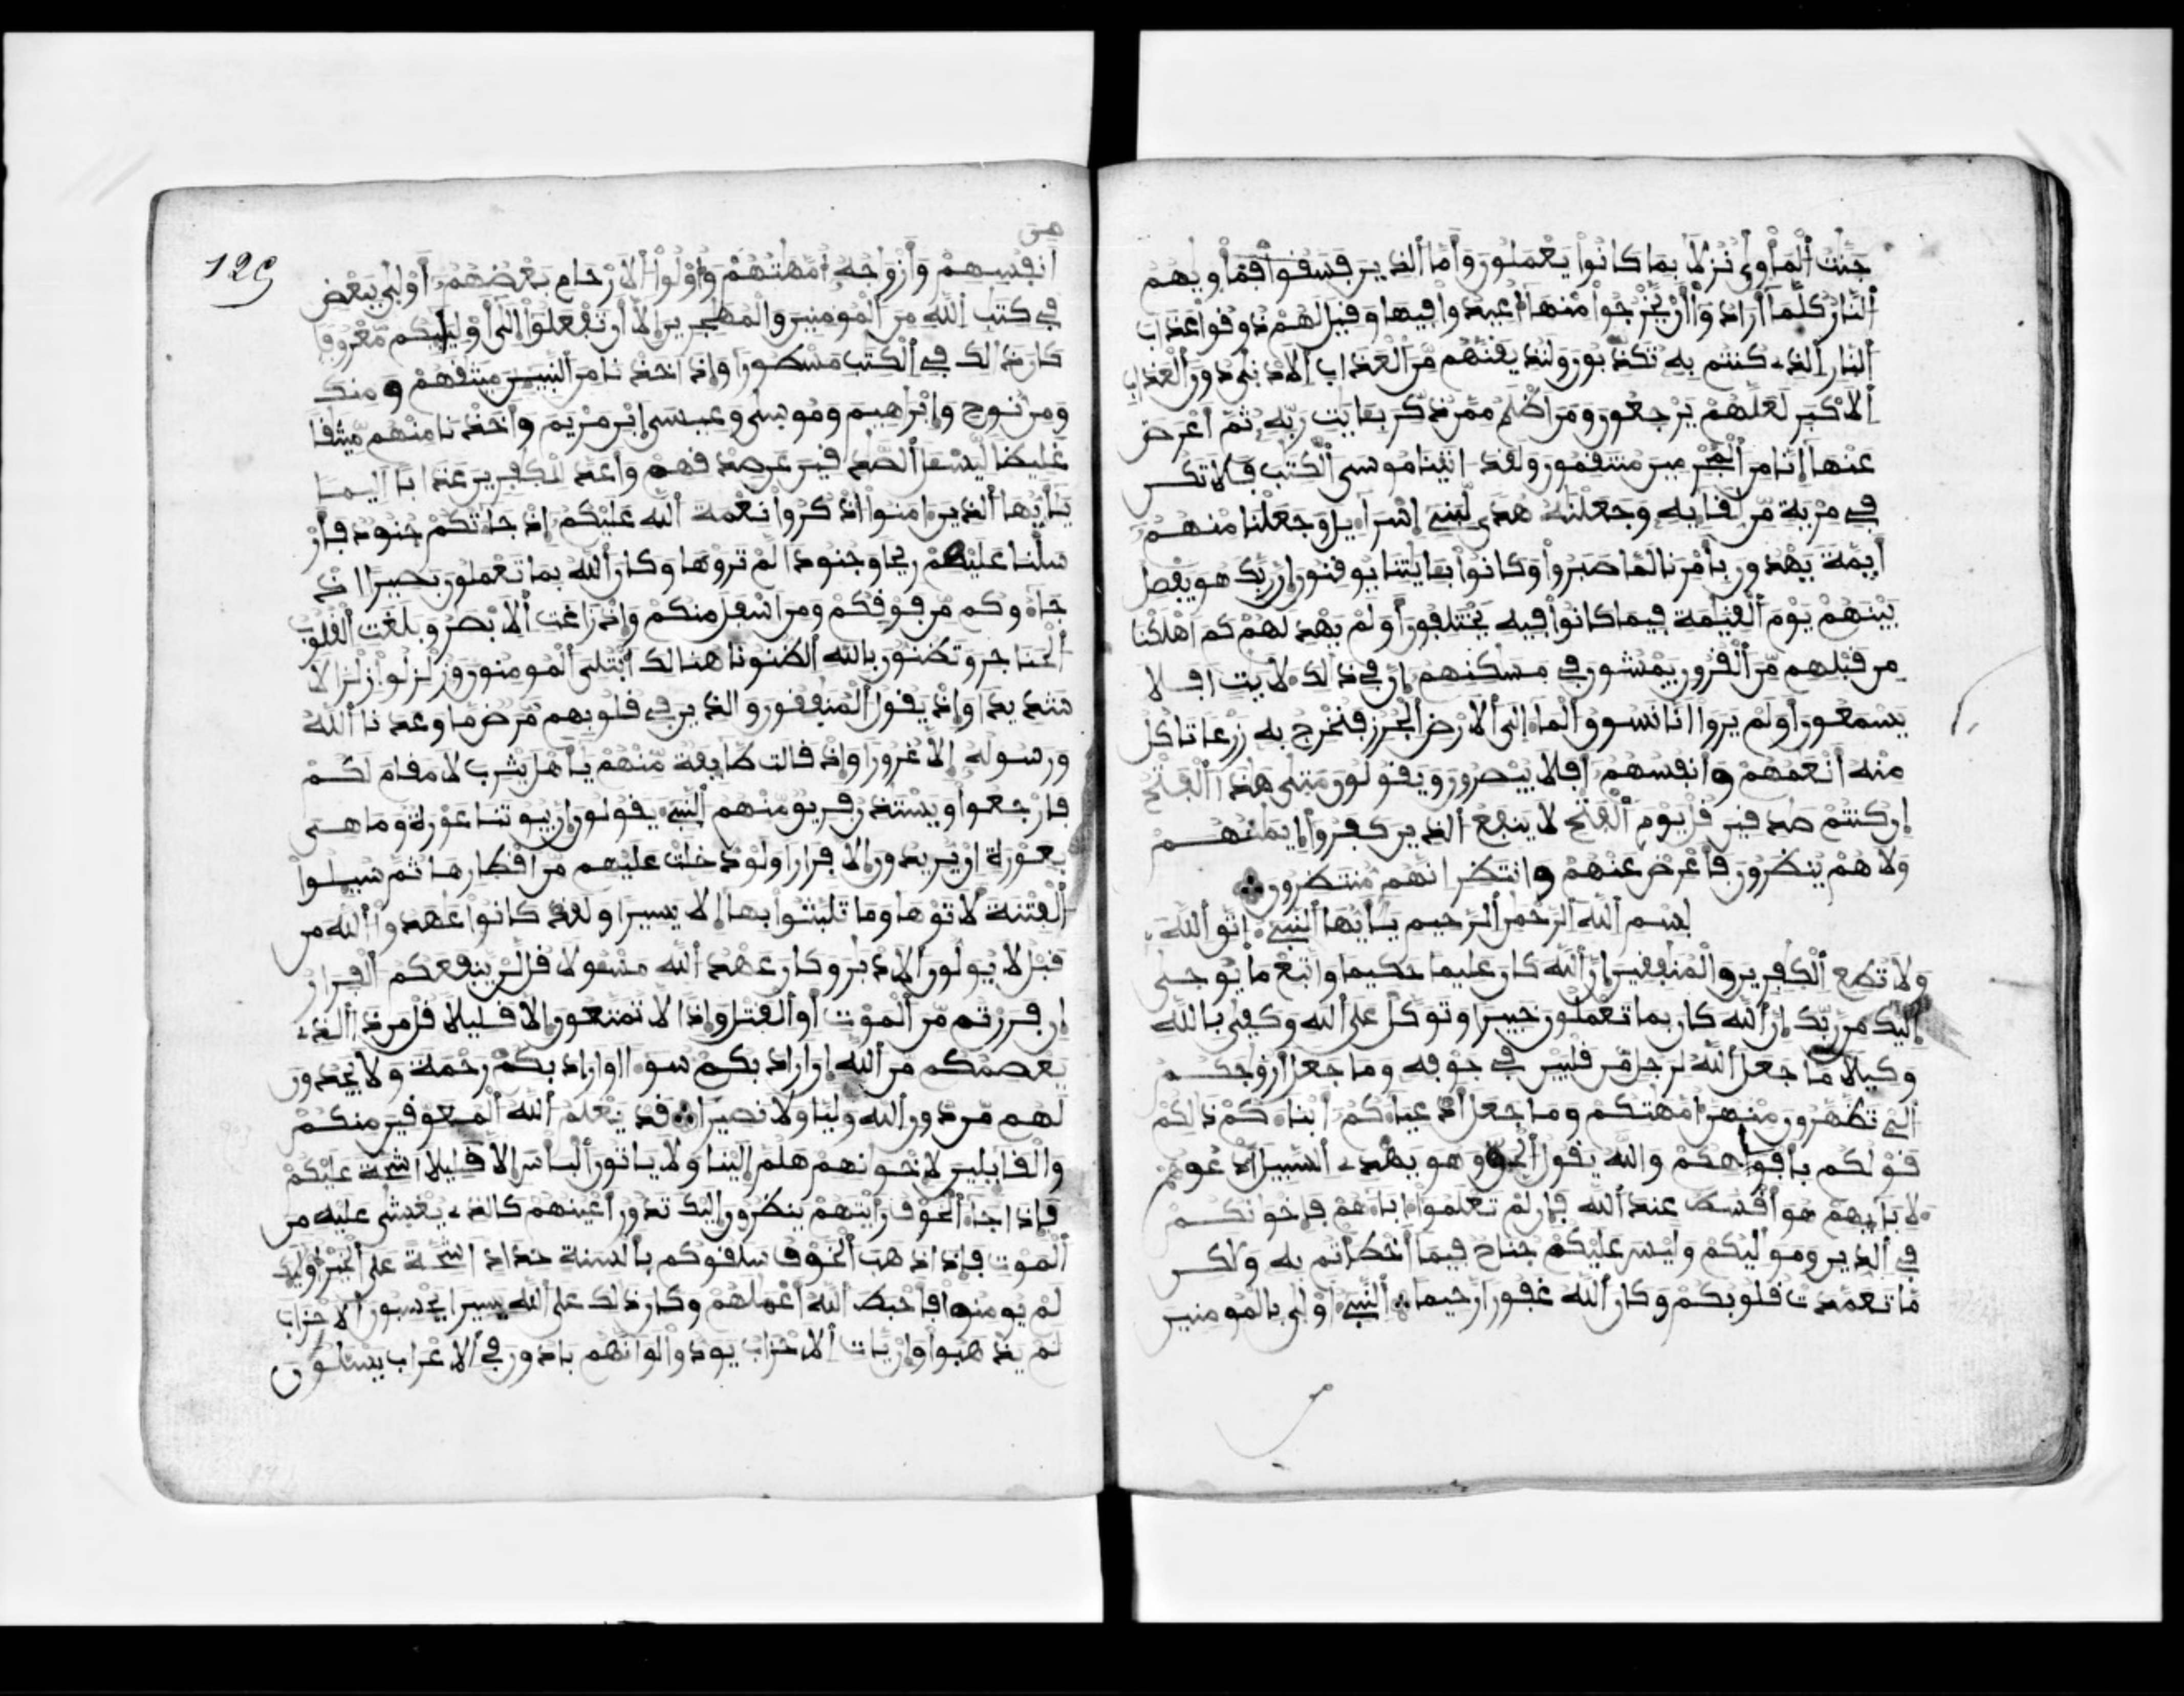 جنت المأوى نزلا بما كانوا يعملون وأما الذين فسقوا فمأويهم
النار كلما أرادوا أن يخرجوا منها أعيدوا فيها وقيل لهم ذوقوا عذاب
النار الذي كنتم به تكذبون ولنذيقنهم من العذاب الادنى دون العذاب
الاكبر لعلهم يرجعون ومن اظلم ممن ذكر بـايت ربه ثم اعرض
عنها إنا من المجرمين منتقمون ولقد اتينا موسى الكتب فلا تكن
في مرية من لقايه وجعلنه هدى لبني إسراءيل وجعلنا منهم
أيمة يهدون بأمرنا لما صبروا وكانوا بـايتنا يوقنون إن ربك هو يفصل
بينهم يوم القيمة فيما كانوا فيه يختلفون أولم يهد لهم كم اهلكنا
من قبلهم من القرون يمشون في مسكنهم إن في ذالك لأيت افلا
يسمعون أولم يروا انا نسوق الماء إلى الارض الجرز فنخرج به زرعا تاكل
منه أنعمهم وأنفسهم أفلا يبصرون ويقولون متى هذا الفتح
إن كنتم صدقين قل يوم الفتح لا ينفع الذين كفروا إيمنهم
ولا هم ينظرون فأعرض عنهم وانتظر انهم منتظرون
بسم الله الرحمن الرحيم يأيها النبيء اتق الله
ولا تطع الكفرين والمنفقين إن الله كان عليما حكيما واتبع ما يوحى
إليك من ربك إن الله كان بما تعملون خبيرا وتوكل على الله وكفى بالله
وكيلا ما جعل الله لرجل من قلبين في جوفه وما جعل ازوجكم
الئ تظهرون منهن أمهتكم وما جعل أدعياءكم أبناءكم ذلكم
قولكم بأفوهكم والله يقول الحق وهو يهدي السبيل ادعوهم
لابايهم هو أقسط عند الله فإن لم تعلموا اباءهم فإخونكم
في الدين ومواليكم وليس عليكم جناح فيما أخطأتم به ولكن
ما تعمدت قلوبكم وكان الله غفورا رحيما النبيء اولى بالمومنين
129
من
انفسهم وأزواجه أمهتهم وأولوا الارحام بعضهم أولى ببعض
في كتب الله من المومنين والمهجرين إلا أن تفعلوا إلى أوليايكم معروفا
كان ذالك في الكتب مسطورا وإذ اخذنا من النبيين ميثقهم ومنك
ومن نوح وإبرهيم وموسى وعيسى ابن مريم وأخذنا منهم ميثقا
غليظا ليسئل الصدقين عن صدقهم وأعد للكفرين عذابا اليما
يأيها الذين امنوا اذكروا نعمة الله عليكم إذ جاءتكم جنود فأر
سلنا عليهم ريحا وجنودا لم تروها وكان الله بما تعملون بصيرا اذ
جاءوكم من فوقكم ومن اسفل منكم وإذ زاغت الابصر وبلغت القلوب
الحناجر وتظنون بالله الظنونا هنالك ابتلي المومنون وزلزلوا زلزالا
شديدا وإذ يقول المنفقون والذين في قلوبهم مرض ما وعدنا الله
ورسوله إلا غرورا وإذ قالت طايفة منهم يأهل يثرب لا مقام لكم
فارجعوا ويستذن فريق منهم النبيء يقولون إن بيوتنا عورة وما هي
بعورة ان يريدون إلا فرارا ولو دخلت عليهم من اقطارها ثم سيلوا
الفتنة لاتوها وما تلبثوا بها إلا يسيرا ولقد كانوا عهدوا الله من
قبل لا يولون الادبر وكان عهد الله مسئولا قل لن ينفعكم الفرار
إن فررتم من الموت أو القتل وإذا لا تمتعون إلا قليلا قل من ذا الذي
يعصمكم من الله إن اراد بكم سوءا او اراد بكم رحمة ولا يجدون
لهم من دون الله وليا ولا نصيرا قد يعلم الله المعوقين منكم
والقايلين لإخوانهم هلم إلينا ولا ياتون البأس إلا قليلا اشحة عليكم
فإذا جاء الخوف رأيتهم ينظرون إليك تدور أعينهم كالذي يغشى عليه من
الموت فإذا ذهب الخوف سلقوكم بألسنة حداد اشحة على الخير أوليك
لم يومنوا فأحبط الله أعملهم وكان ذلك على الله يسيرا يحسبون الاحزاب
لم يذهبوا وإن يأت الاحزاب يودوا لو انهم بادون في الاعراب يسئلون